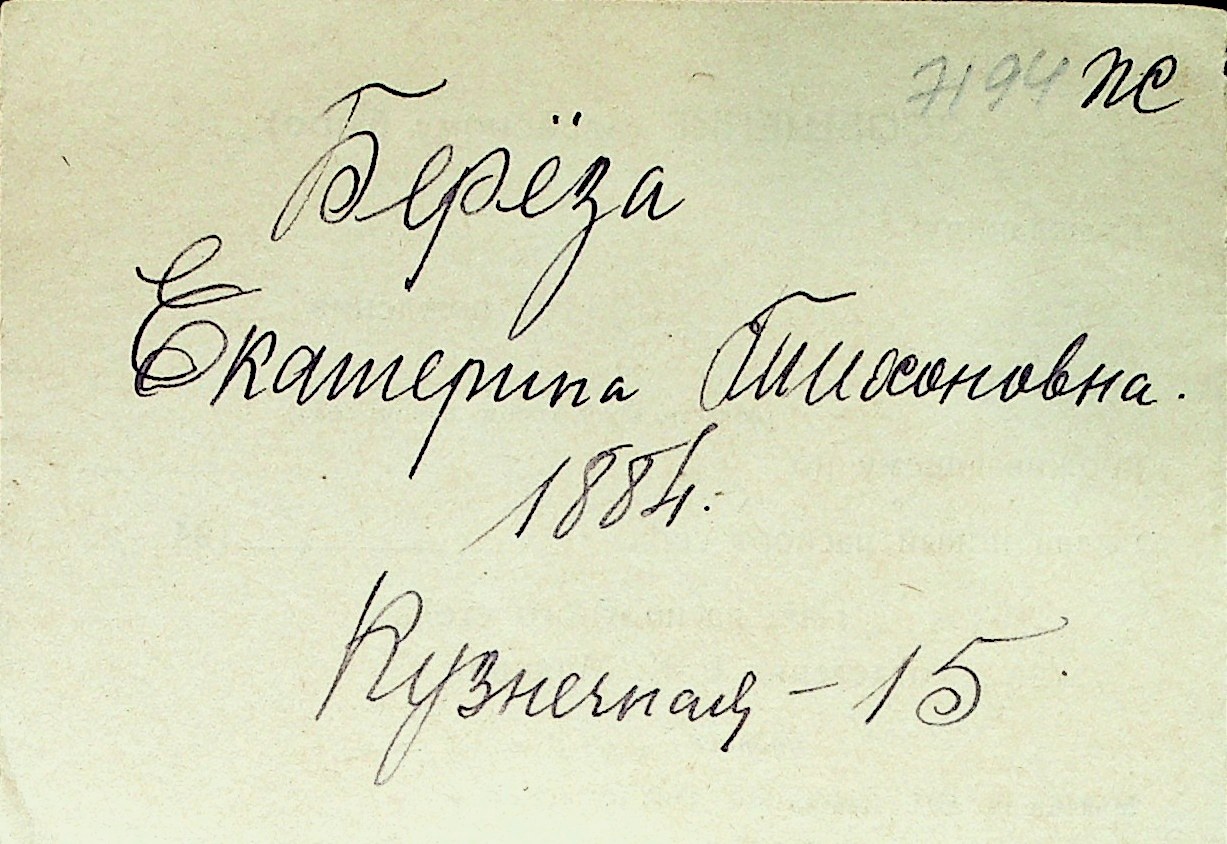 7194 ПС
Берёза
Екатерина Тихоновна.
1884.
Кузнечная - 15